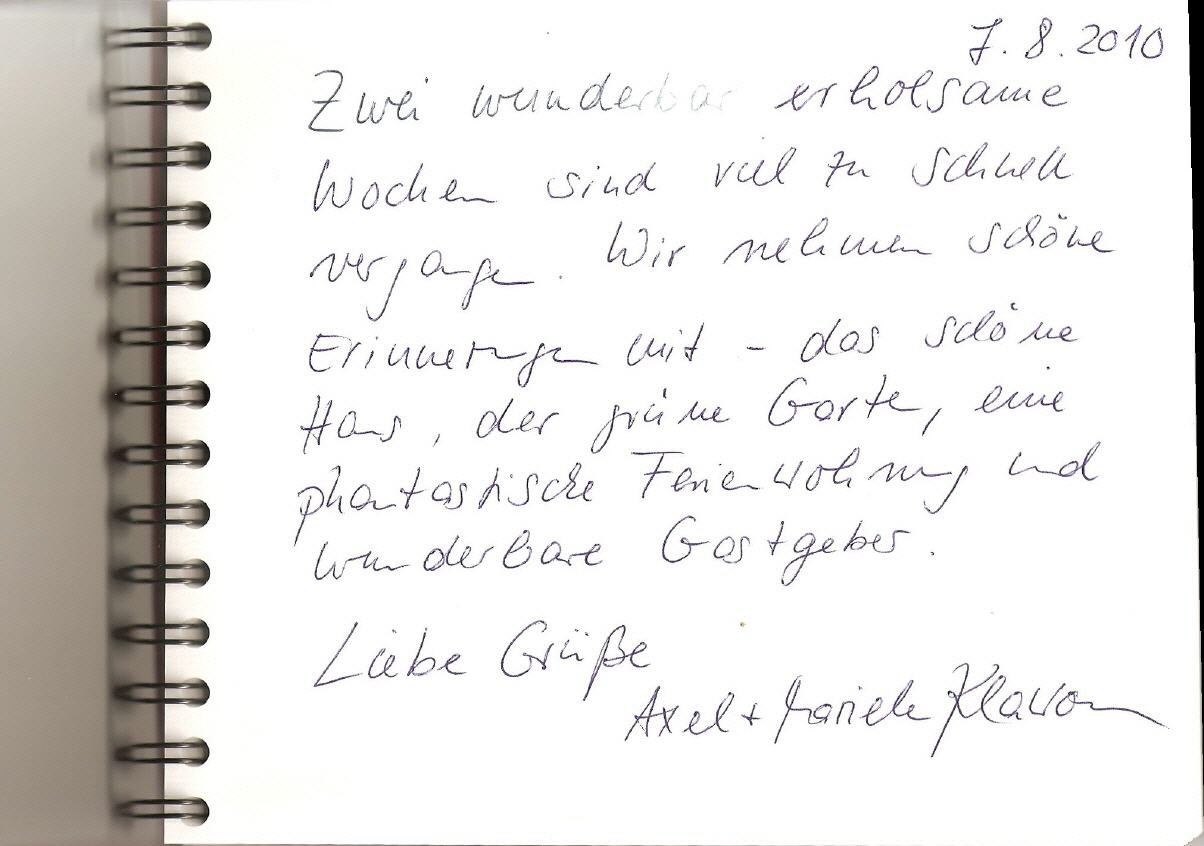 7.8.2010
Zwei wunderbar erholsame
Wochen sind viel zu schnell
vergangen. Wir nehmen schöne
Erinnerungen mit - das schöne
Haus, der grüne Garten, eine
phantastische Ferienwohnung und
wunderbare Gastgeber.
Liebe Grüße
Axel +